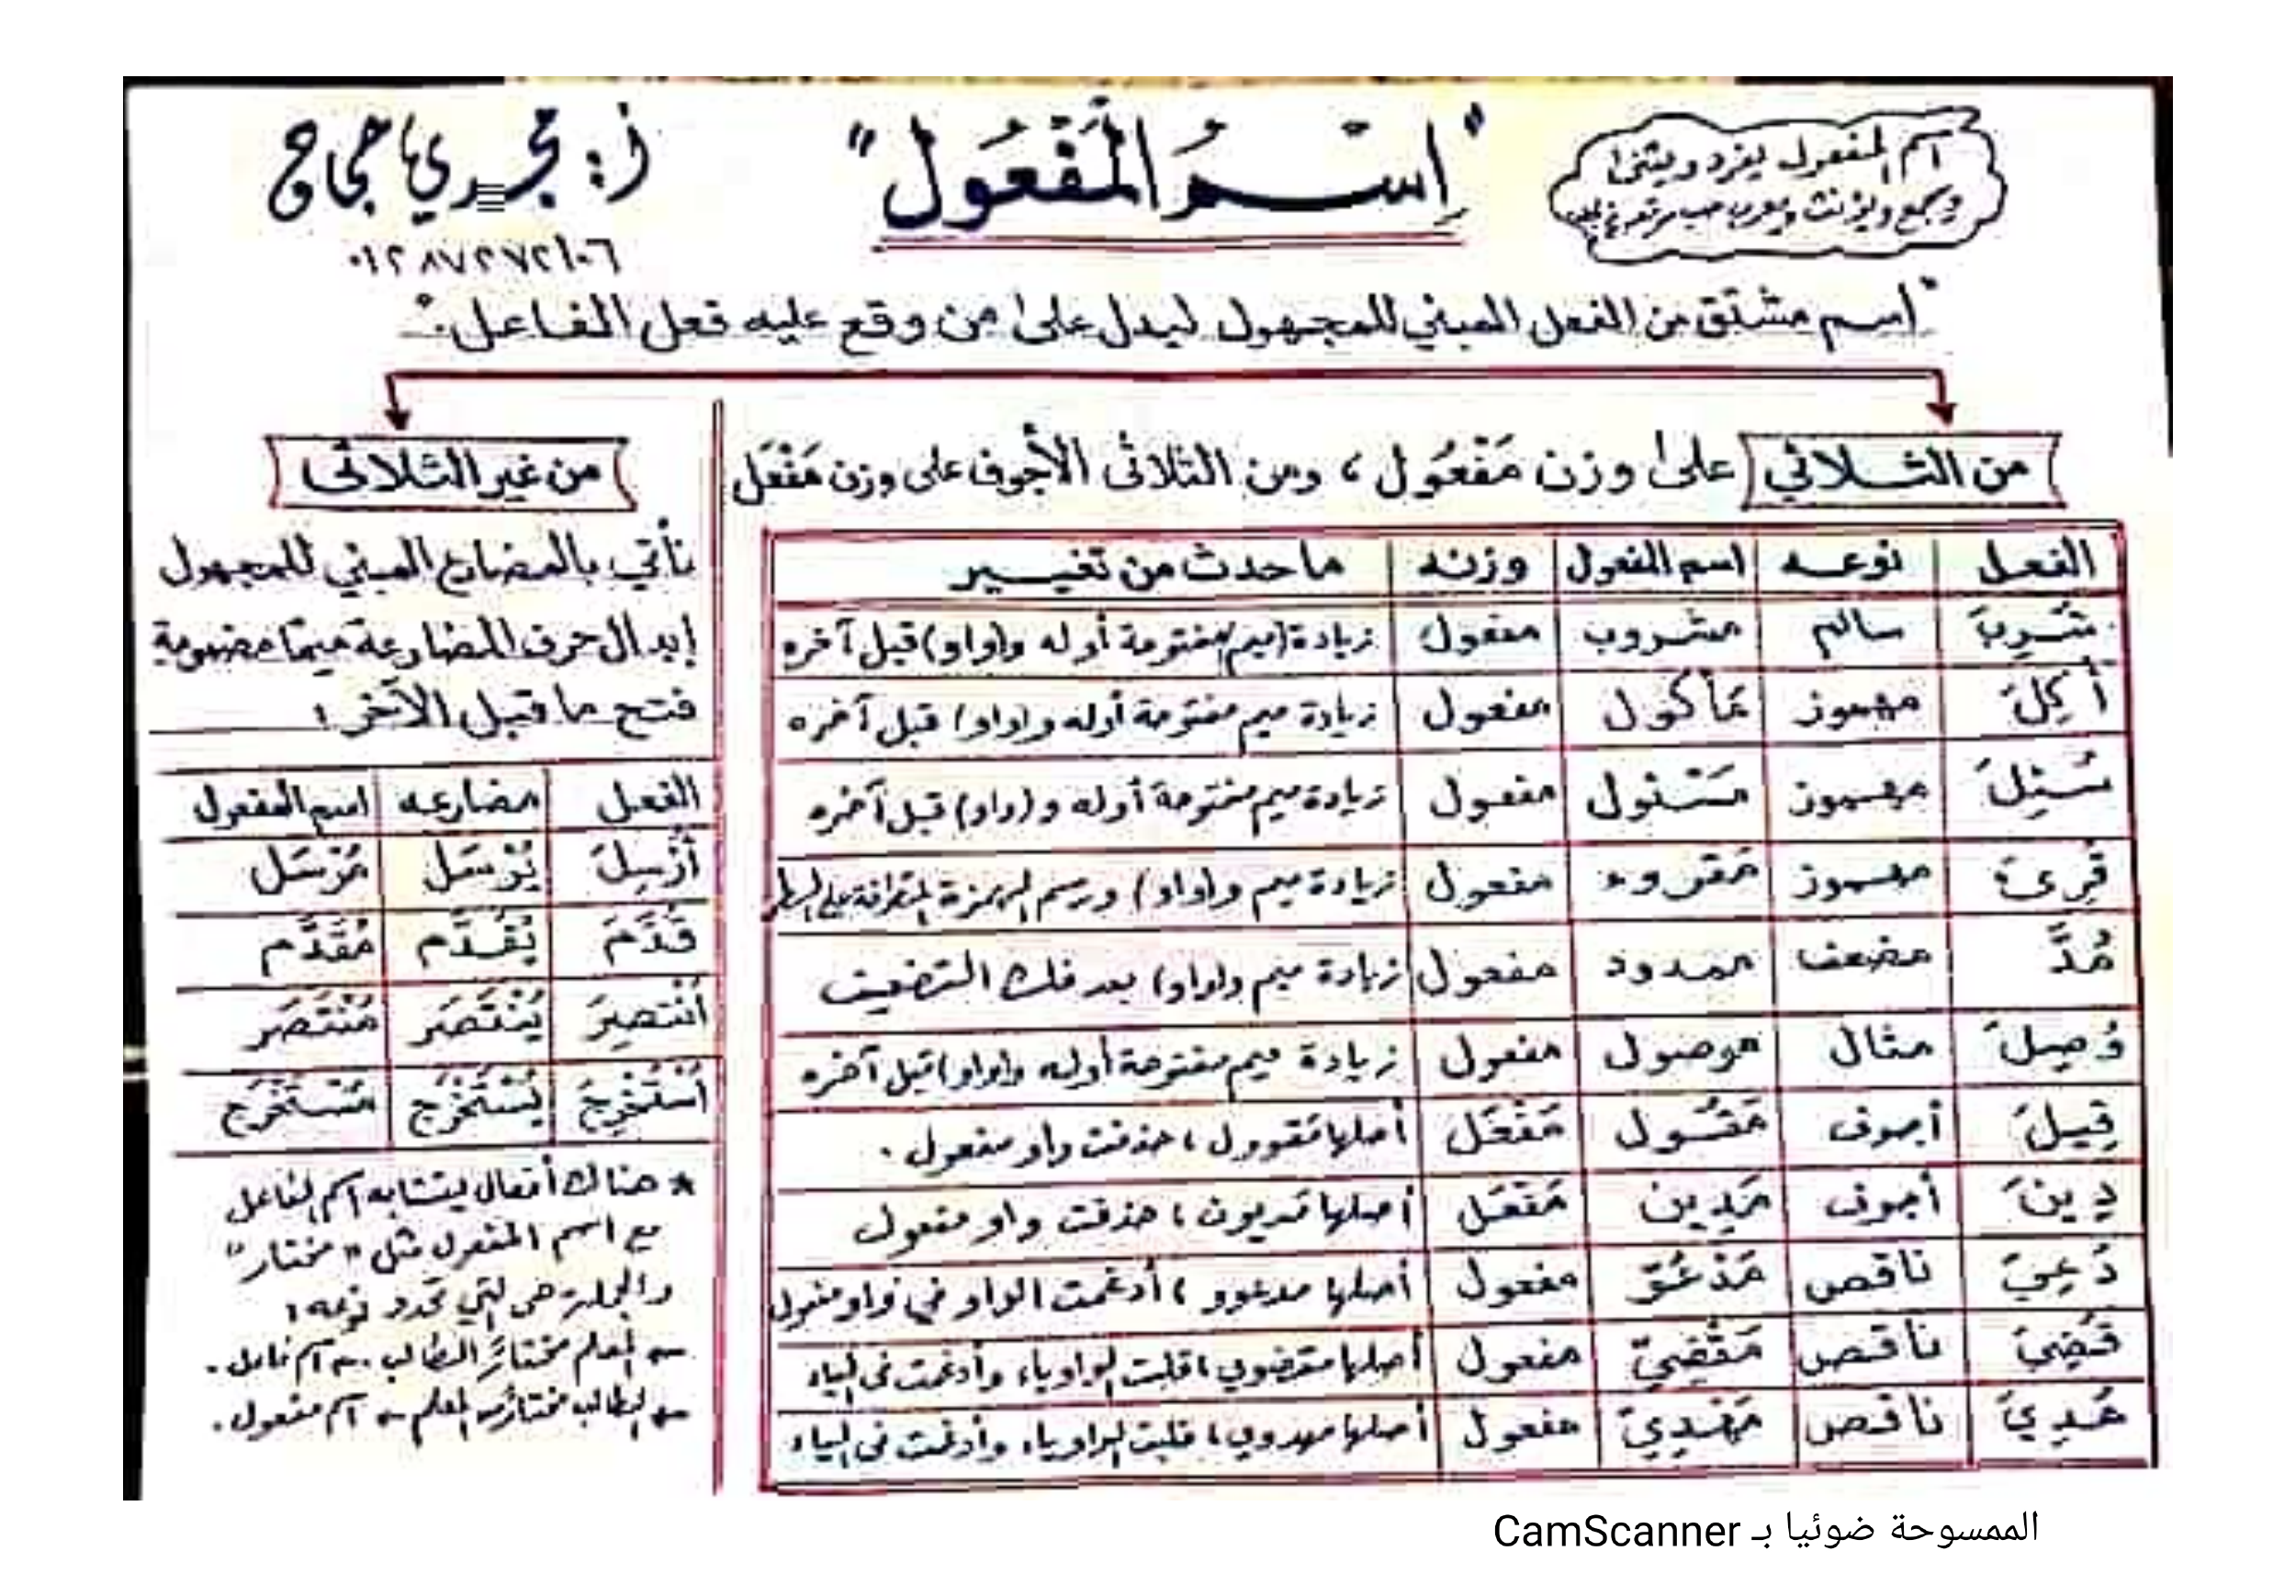 اسم المفعول يفرد ويثنى
ويجمع ويؤنث ويعرب حسب
"اِسْمُ المَفْعُول"
أ: مجدي حجاج
٠١٢٨٧٢٧٢١٠٦
"اسم مشتق من الفعل المبني للمجهول ليدل على من وقع عليه فعل الفاعل."
من الثلاثي على وزن مَفْعُول، ومن الثلاثى الأجوف على وزن مَفْعَل
الفعل نوعه اسم المفعول وزنه ما حدث من تغيير
شُرِبَ سالم مشروب مفعول زيادة (ميم) مفتوحة أوله و(واو) قبل آخره
أُكِلَ مهموز مَأكول مفعول زيادة ميم مفتوحة أوله و(واو) قبل آخره
سُئِلَ مهموز مَسْئول مفعول زيادة ميم مفتوحة أوله و(واو) قبل آخره
قُرِئَ مهموز مَقروء مفعول زيادة ميم و(واو) ورسم الهمزة المتطرفة على السطر
مُدَّ مضعف ممدود مفعول زيادة ميم و(واو) بعد فك التضعيف
وُصِلَ مثال موصول مفعول زيادة ميم مفتوحة أوله و(واو) قبل آخره
قِيلَ أجوف مَقُول مَفْعَل أصلها مَقوول، حذفت واو مفعول.
دِينَ أجوف مَدِين مَفْعَل أصلها مَديون، حذفت واو مفعول
دُعِيَ ناقص مَدْعُوّ مفعول أصلها مدعوو، أدغمت الواو في واو مفعول
قُضِيَ ناقص مَقْضِيّ مفعول أصلها مقضوي، قلبت الواو ياء وأدغمت فى الياء
هُدِيَ ناقص مَهْدِيّ مفعول أصلها مهدوي، قلبت الواو ياء وأدغمت فى الياء
من غير الثلاثى
نأتي بالمضارع المبني للمجهول
إبدال حرف المضارعة ميمًا مضمومة
فتح ما قبل الآخر:
الفعل مضارعه اسم المفعول
أُرْسِلَ يُرْسَل مُرْسَل
قُدَّمَ يُقَدَّم مُقَدَّم
اُنْتصِرَ يُنْتَصَر مُنْتَصَر
اُسْتُخْرِجَ يُسْتَخْرَج مُسْتَخْرَج
* هناك أفعال يتشابه اسم الفاعل
مع اسم المفعول مثل "مختار"
والجملة هى التي تحدد نوعه:
← المعلم مختارٌ الطالب. ← اسم فاعل.
← الطالب مختارٌ من المعلم ← اسم مفعول.
الممسوحة ضوئيا بـ CamScanner